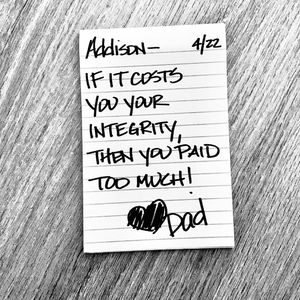 Addison— 4/22
IF IT COSTS
YOU YOUR
INTEGRITY,
THEN YOU PAID
TOO MUCH!
Dad